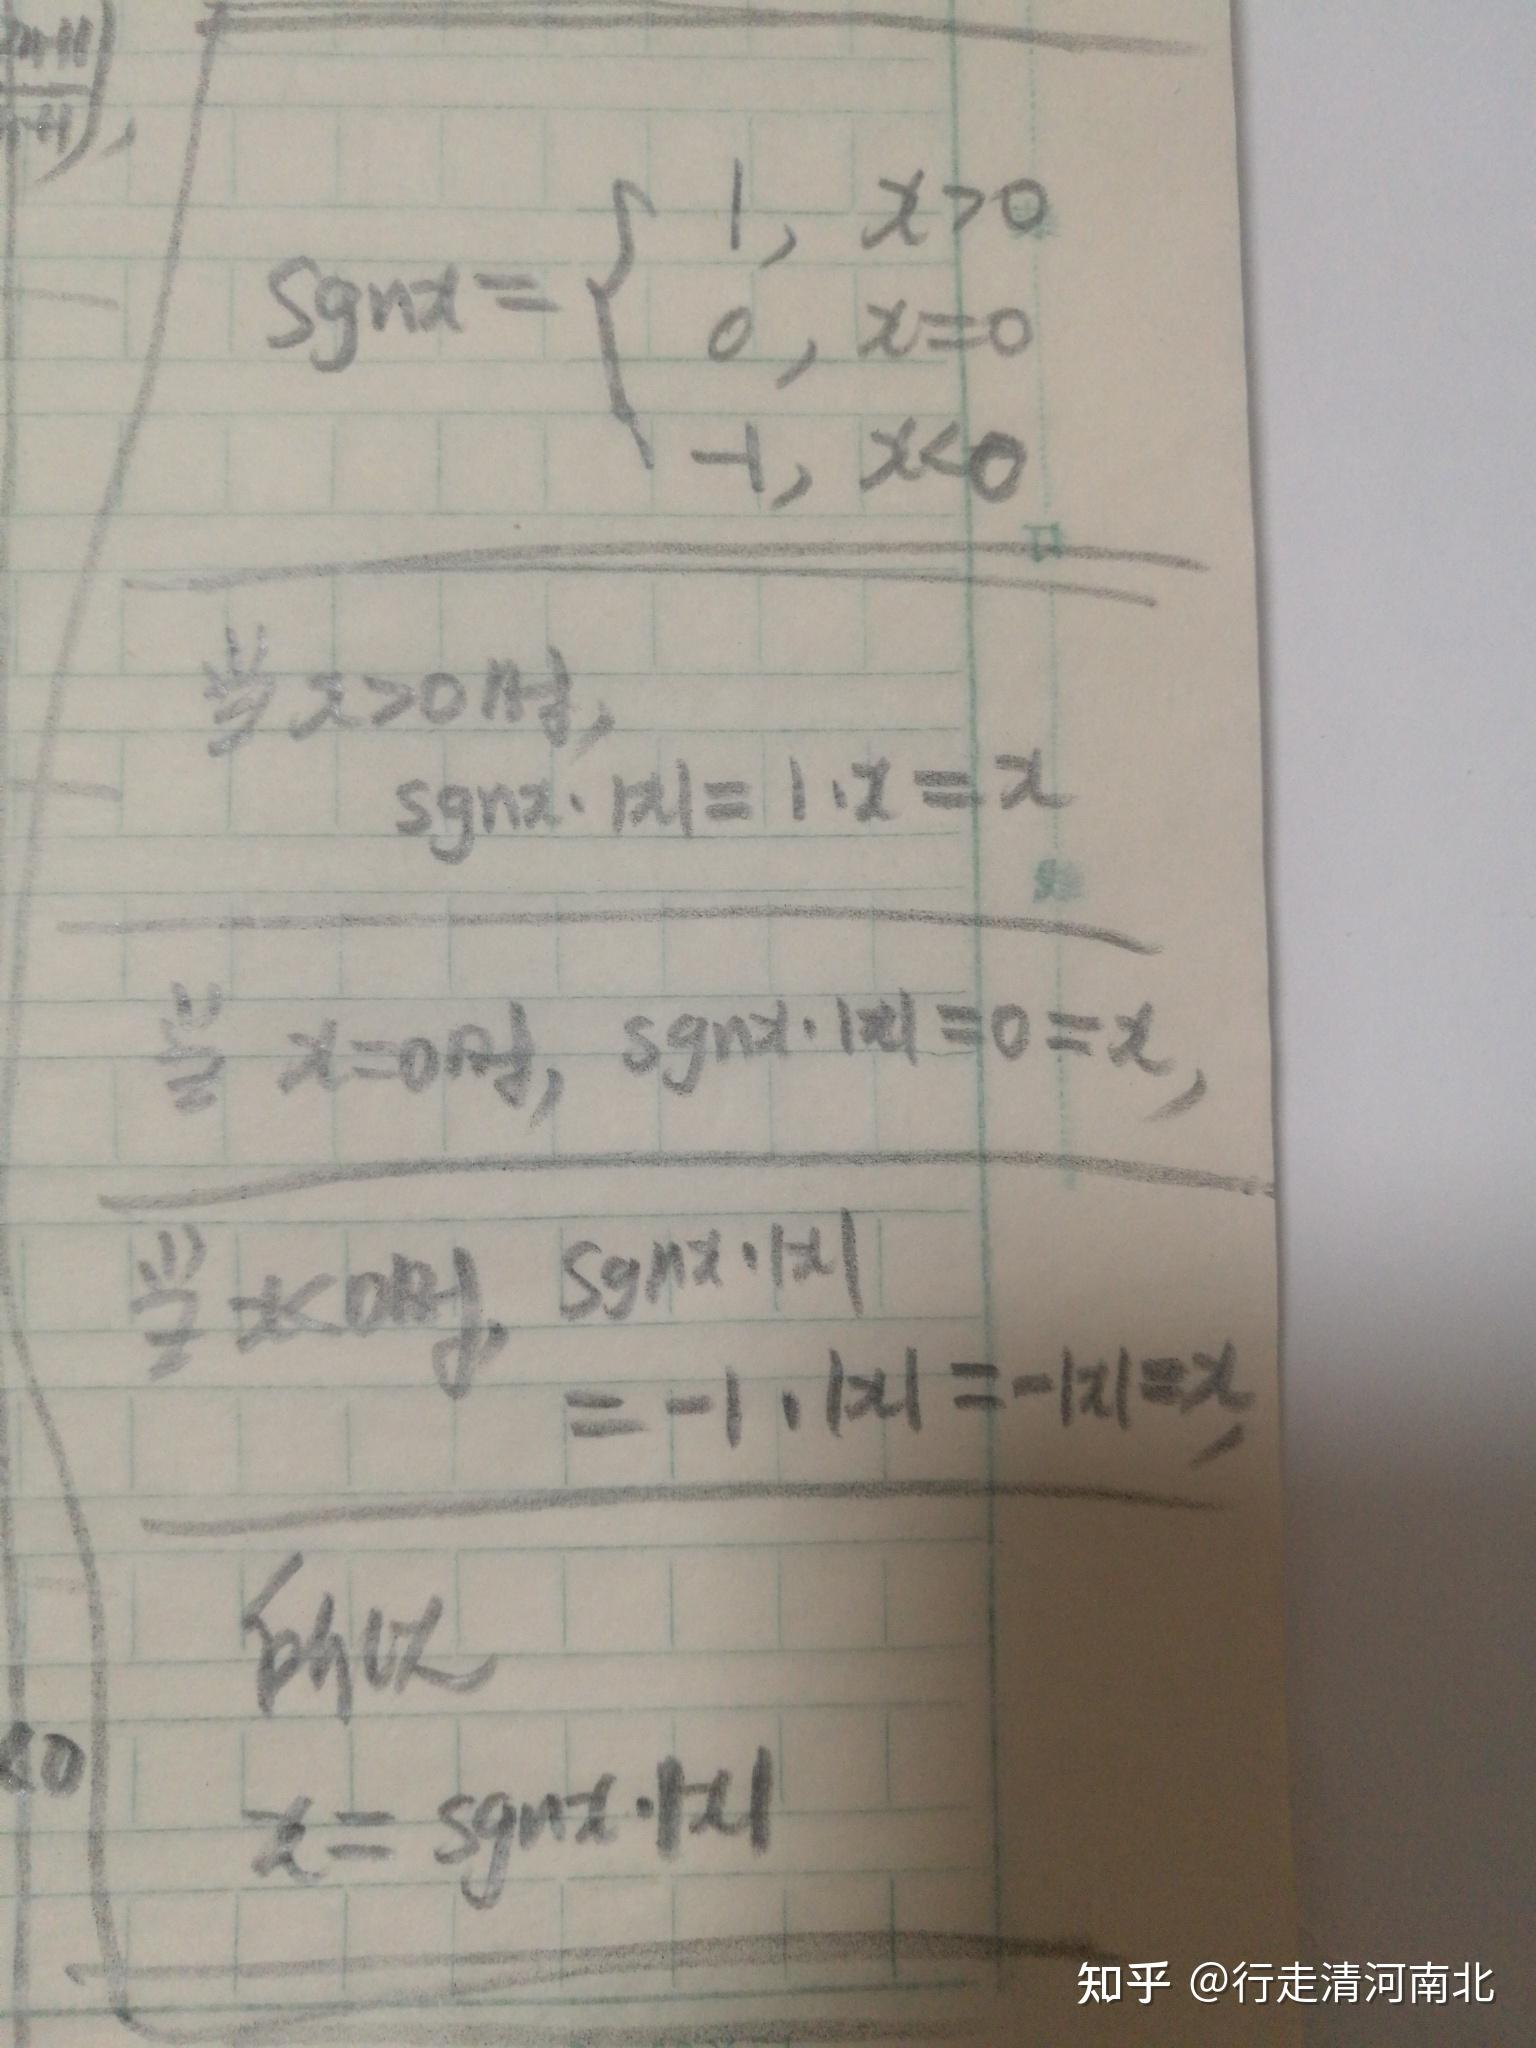 sgnx = { 1, x>0
0, x=0
-1, x<0
当x>0时,
sgnx·|x|=1·x=x
当 x=0时, sgnx·|x|=0=x,
当x<0时, sgnx·|x|
=-1·|x|=-|x|=x,
所以
<0
x=sgnx·|x|
知乎 @行走清河南北